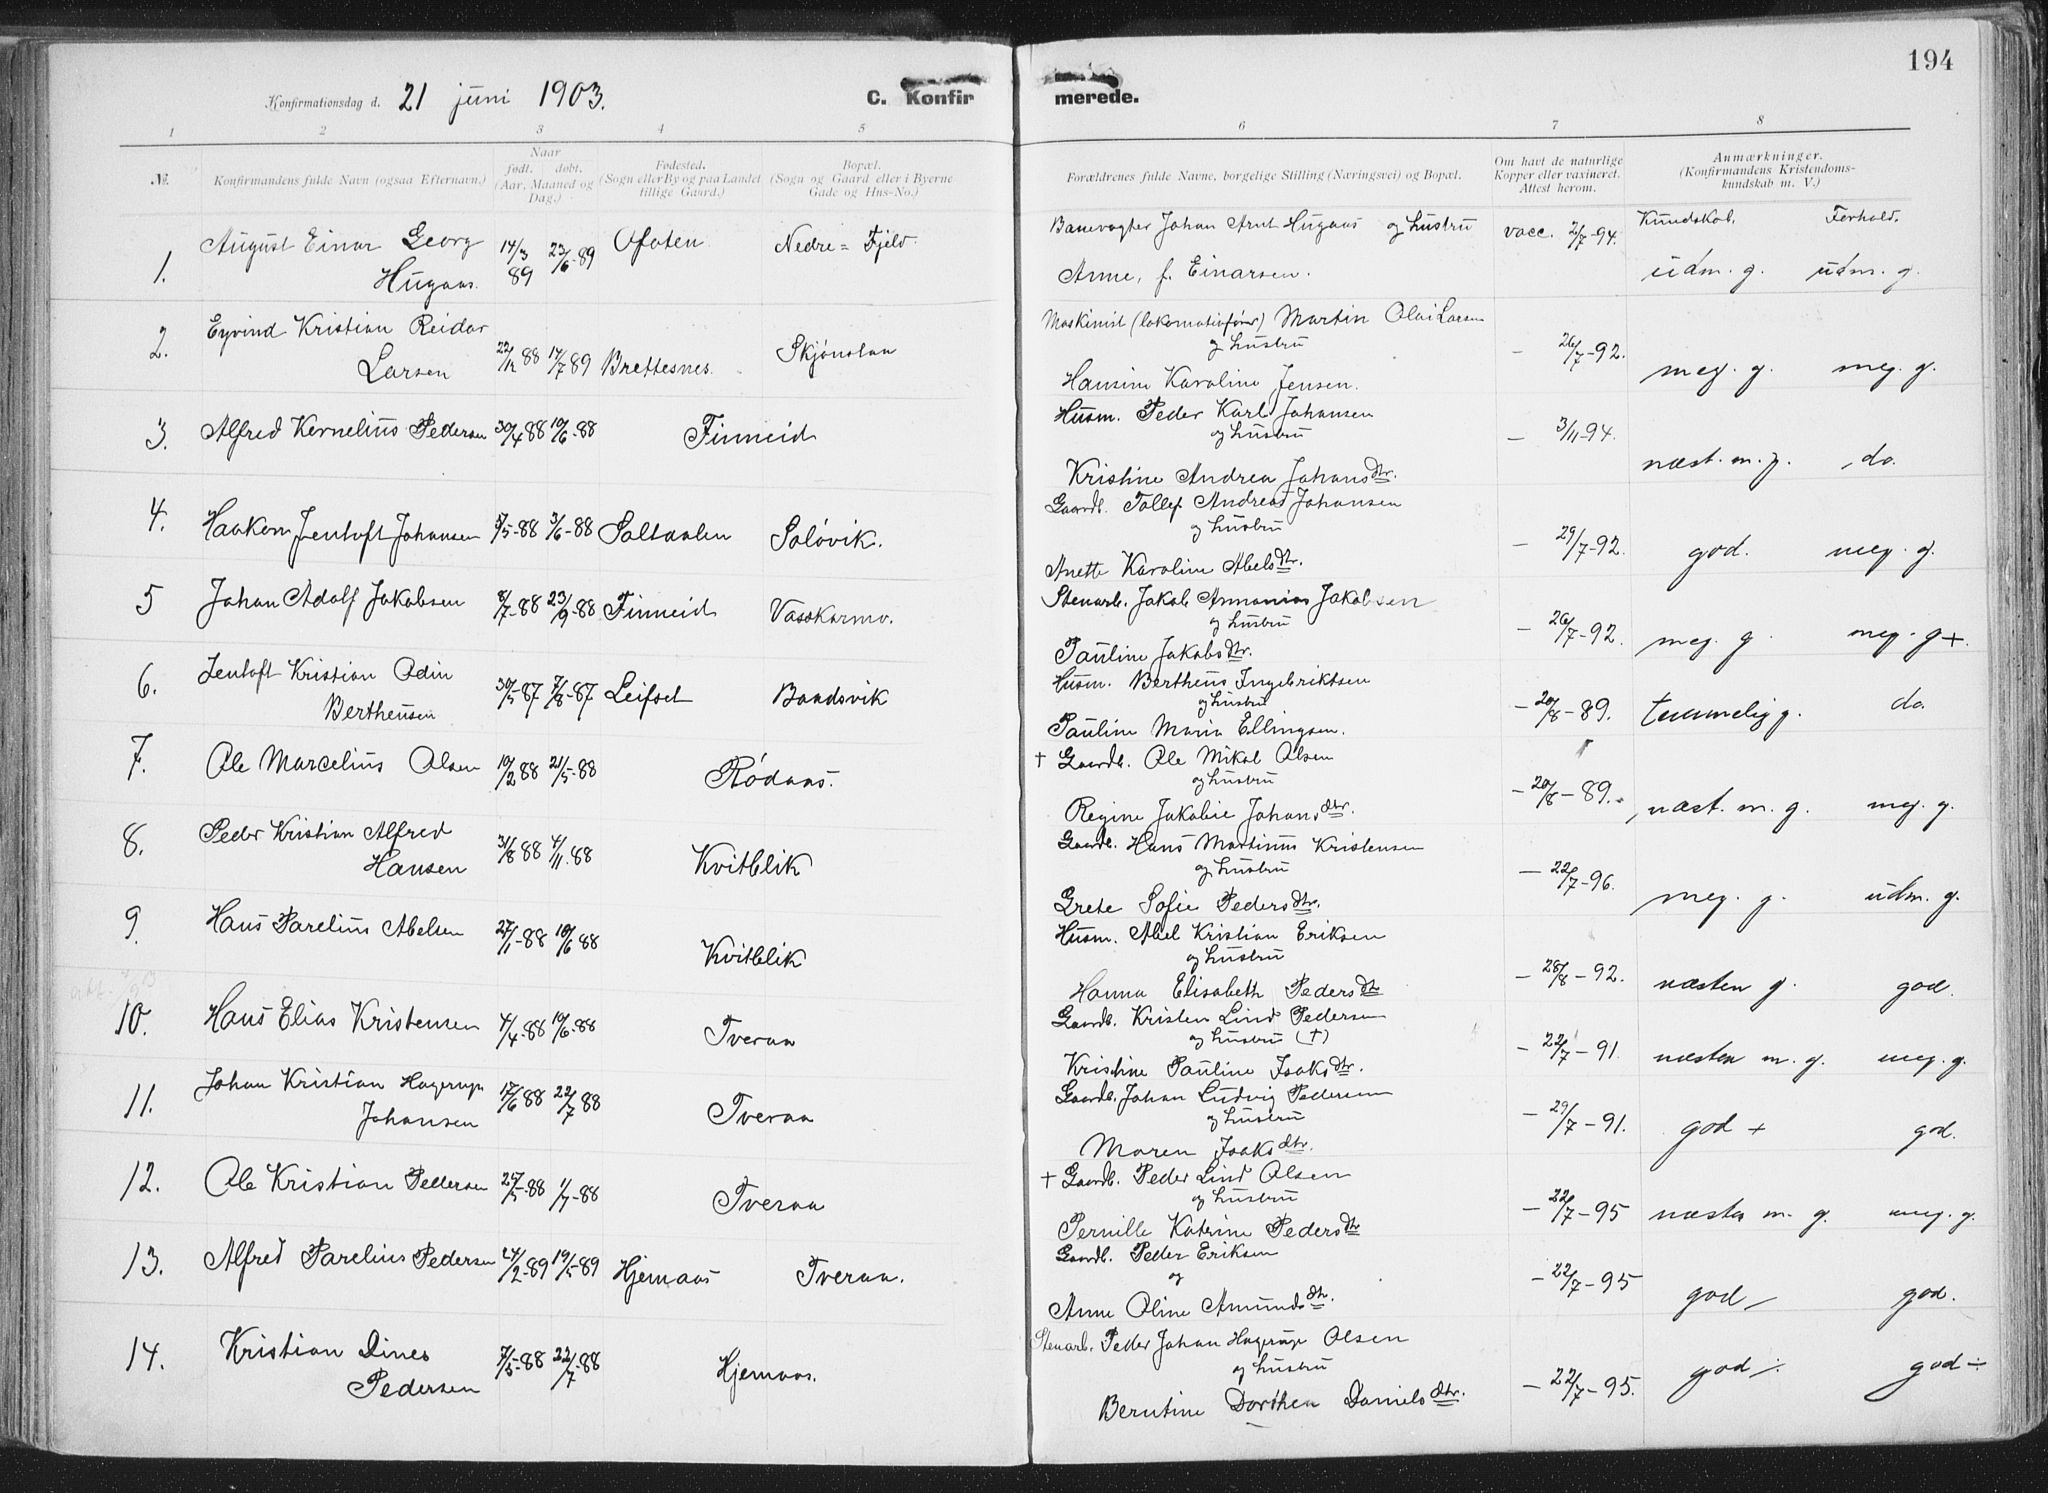 194
Konfirmationsdag d. 21 juni 1903. C. Konfirmerede.
1 2 3 4 5 6 7 8
№. Konfirmandens fulde Navn (ogsaa Efternavn.) Naar født. døbt. (Aar, Maaned og Dag.) Fødested. (Sogn eller By og paa Landet tillige Gaard.) Bopæl. (Sogn og Gaard eller i Byerne Gade og Hus-No.) Forældrenes fulde Navne, borgelige Stilling (Næringsvei) og Bopæl. Om havt de naturlige Kopper eller vaxineret. Attest herom. Anmærkninger. (Konfirmandens Kristendomskundskab m. V.)
Kundskab. Forhold.
1. August Einar Georg Hugaas. 14/3 89 23/6-89 Ofoten Nedre=Fjeld Banevogter Johan Arnt Hugaas og hustru vacc. 2/7-94.
Anne, f. Einarsen. udm. g. udm. g.
2. Eyvind Kristian Reidar Larsen 22/12 88 14/7 89 Brettesnes. Skjønstaa Maskinist (lokomotivfører) Martin Olai Larsen
og hustru
Hansine Karoline Jensen. - 26/7-92. meg. g. meg. g.
3. Alfred Kornelius Pedersen 30/4 88 10/6-88 Finneid Husm. Peder Karl Johansen
og hustru
Kristine Andrea Johansdtr. - 3/11-94. næst. m. g. do.
4. Haakon Jentoft Johansen 5/5-88 3/6-88 Saltdalen Soløvik. Gaardb. Tollef Andreas Johansen
og hustru
Anette Karoline Abelsdtr. - 29/7-92. god. meg. g.
5 Johan Adolf Jakobsen 8/7-88 23/9-88 Finneid Vasskarmo. Stenarb. Jakob Ananias Jakobsen
og hustru
Pauline Jakobsdtr. - 26/7-92. meg. g. meg. g+.
6. Jentoft Kristian Odin Bertheusen 30/5-87 7/8-87 Leifset Baadsvik Husm. Bertheus Ingebriktsen
og hustru
Pauline Maria Ellingsen. - 20/8-89. temmelig g. do.
7. Ole Marcelius Olsen 10/2 88 21/5-88 Rødaas. † Gaardb. Ole Mikal Olsen
og hustru
Regine Jakobie Johansdtr. - 20/8-89. næst. m. g. meg. g.
8. Peder Kristian Alfred Hansen 31/8 88 4/11.88 Kvitblik Gaardb. Hans Martinus Kristensen
og hustru
Grete Sofie Pedersdtr. - 22/7-96. meg. g. udm. g.
9. Hans Parelius Abelsen 27/1-88 10/6 88 Kvitblik Husm. Abel Kristian Eriksen
og hustru
Hanna Elisabeth Pedersdtr - 28/8-92. næsten g. god.
10. Hans Elias Kristensen 4/4-88 10/6-88 Tveraa Gaardb. Kristen Lind Pedersen
og hustru (†)
Kristine Pauline Isaksdtr. - 22/7-91. næsten m. g. meg. g.
11. Johan Kristian Hagerup Johansen 17/6 88 22/7 88 Tveraa Gaardb. Johan Ludvig Pedersen
og hustru
Maren Isaksdtr. - 29/7-91. god + god.
12. Ole Kristian Pedersen 25/5-88 1/7-88 Tveraa † Gaardb. Peder Lind Olsen
og hustru
Pernille Katrine Pedersdtr - 22/7-95 næsten m. g. meg. g.
13. Alfred Parelius Pedersen 24/2-89 19/5-89 Hjemaas Tveraa. Gaardb. Peder Eriksen
og
Anne Oline Amundsdtr. - 22/7-95 god god.
14. Kristian Dines Pedersen 7/5-88 22/7-88 Hjemaas. Stenarb. Peder Johan Hagerup Olsen
og hustru
Berntine Dorthea Danielsdtr. - 22/7-95. god ÷ god ÷